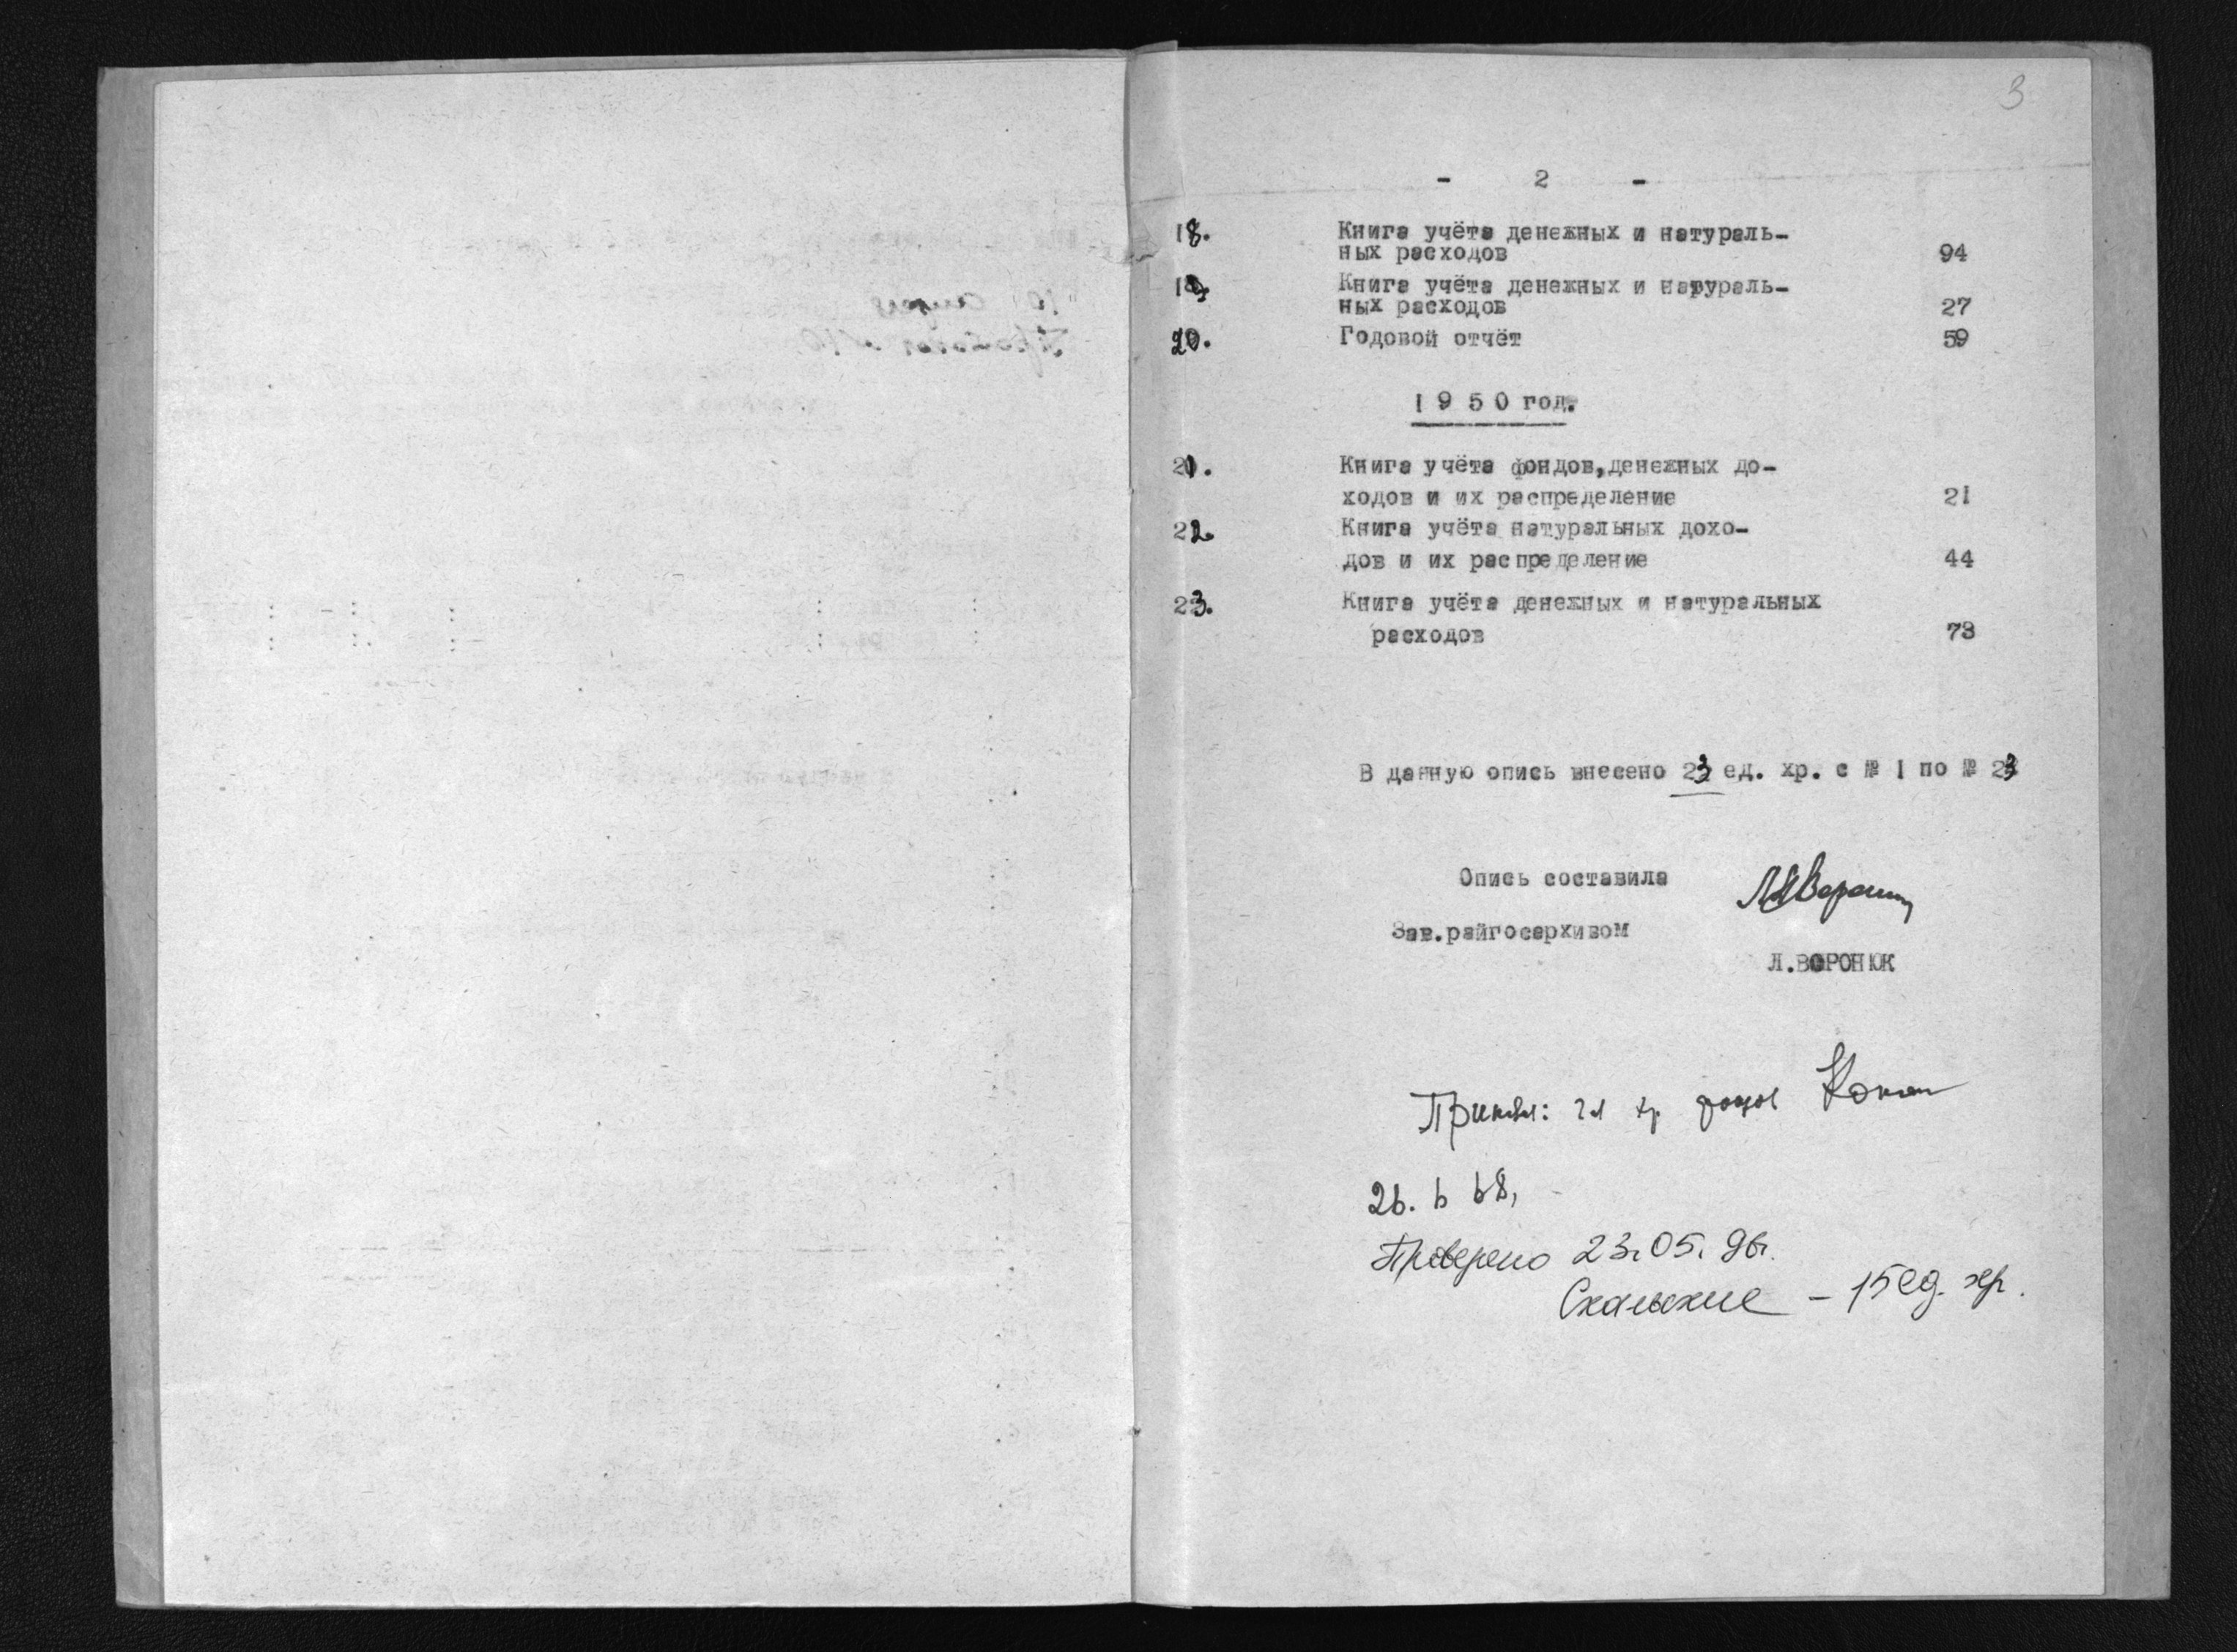 3
- 2 -
18. Книга учёта денежных и натураль-
ных расходов 94
19. Книга учёта денежных и натураль-
ных расходов 27
20. Годовой отчёт 59
1950 год.
21. Книга учёта фондов, денежных до-
ходов и их распределение 21
22. Книга учёта натуральных дохо-
дов и их распределение 44
23. Книга учёта денежных и натуральных
расходов 73
В данную опись внесено 23 ед. хр. с № 1 по № 23
Опись составила
Зав.райгосархивом
Л.ВОРОНЮК
26. 6 68,
Проверено 23.05.96г.
– 15 ед. хр.